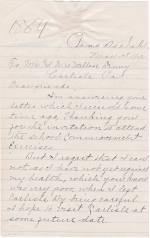 1564
Pama Cal.
To Mr. Wm. Wallace Denny
Carlisle Pa.
Dear friend:
I'm answering your
letter which I received some
time ago thanking you
for the invitation to attend
the school Commencement
Exercises.
But I regret that I can
not as I have not yet regained
my health, which you know
was very poor when I left
Carlisle by being careful
I hope to visit Carlisle at
some future date.